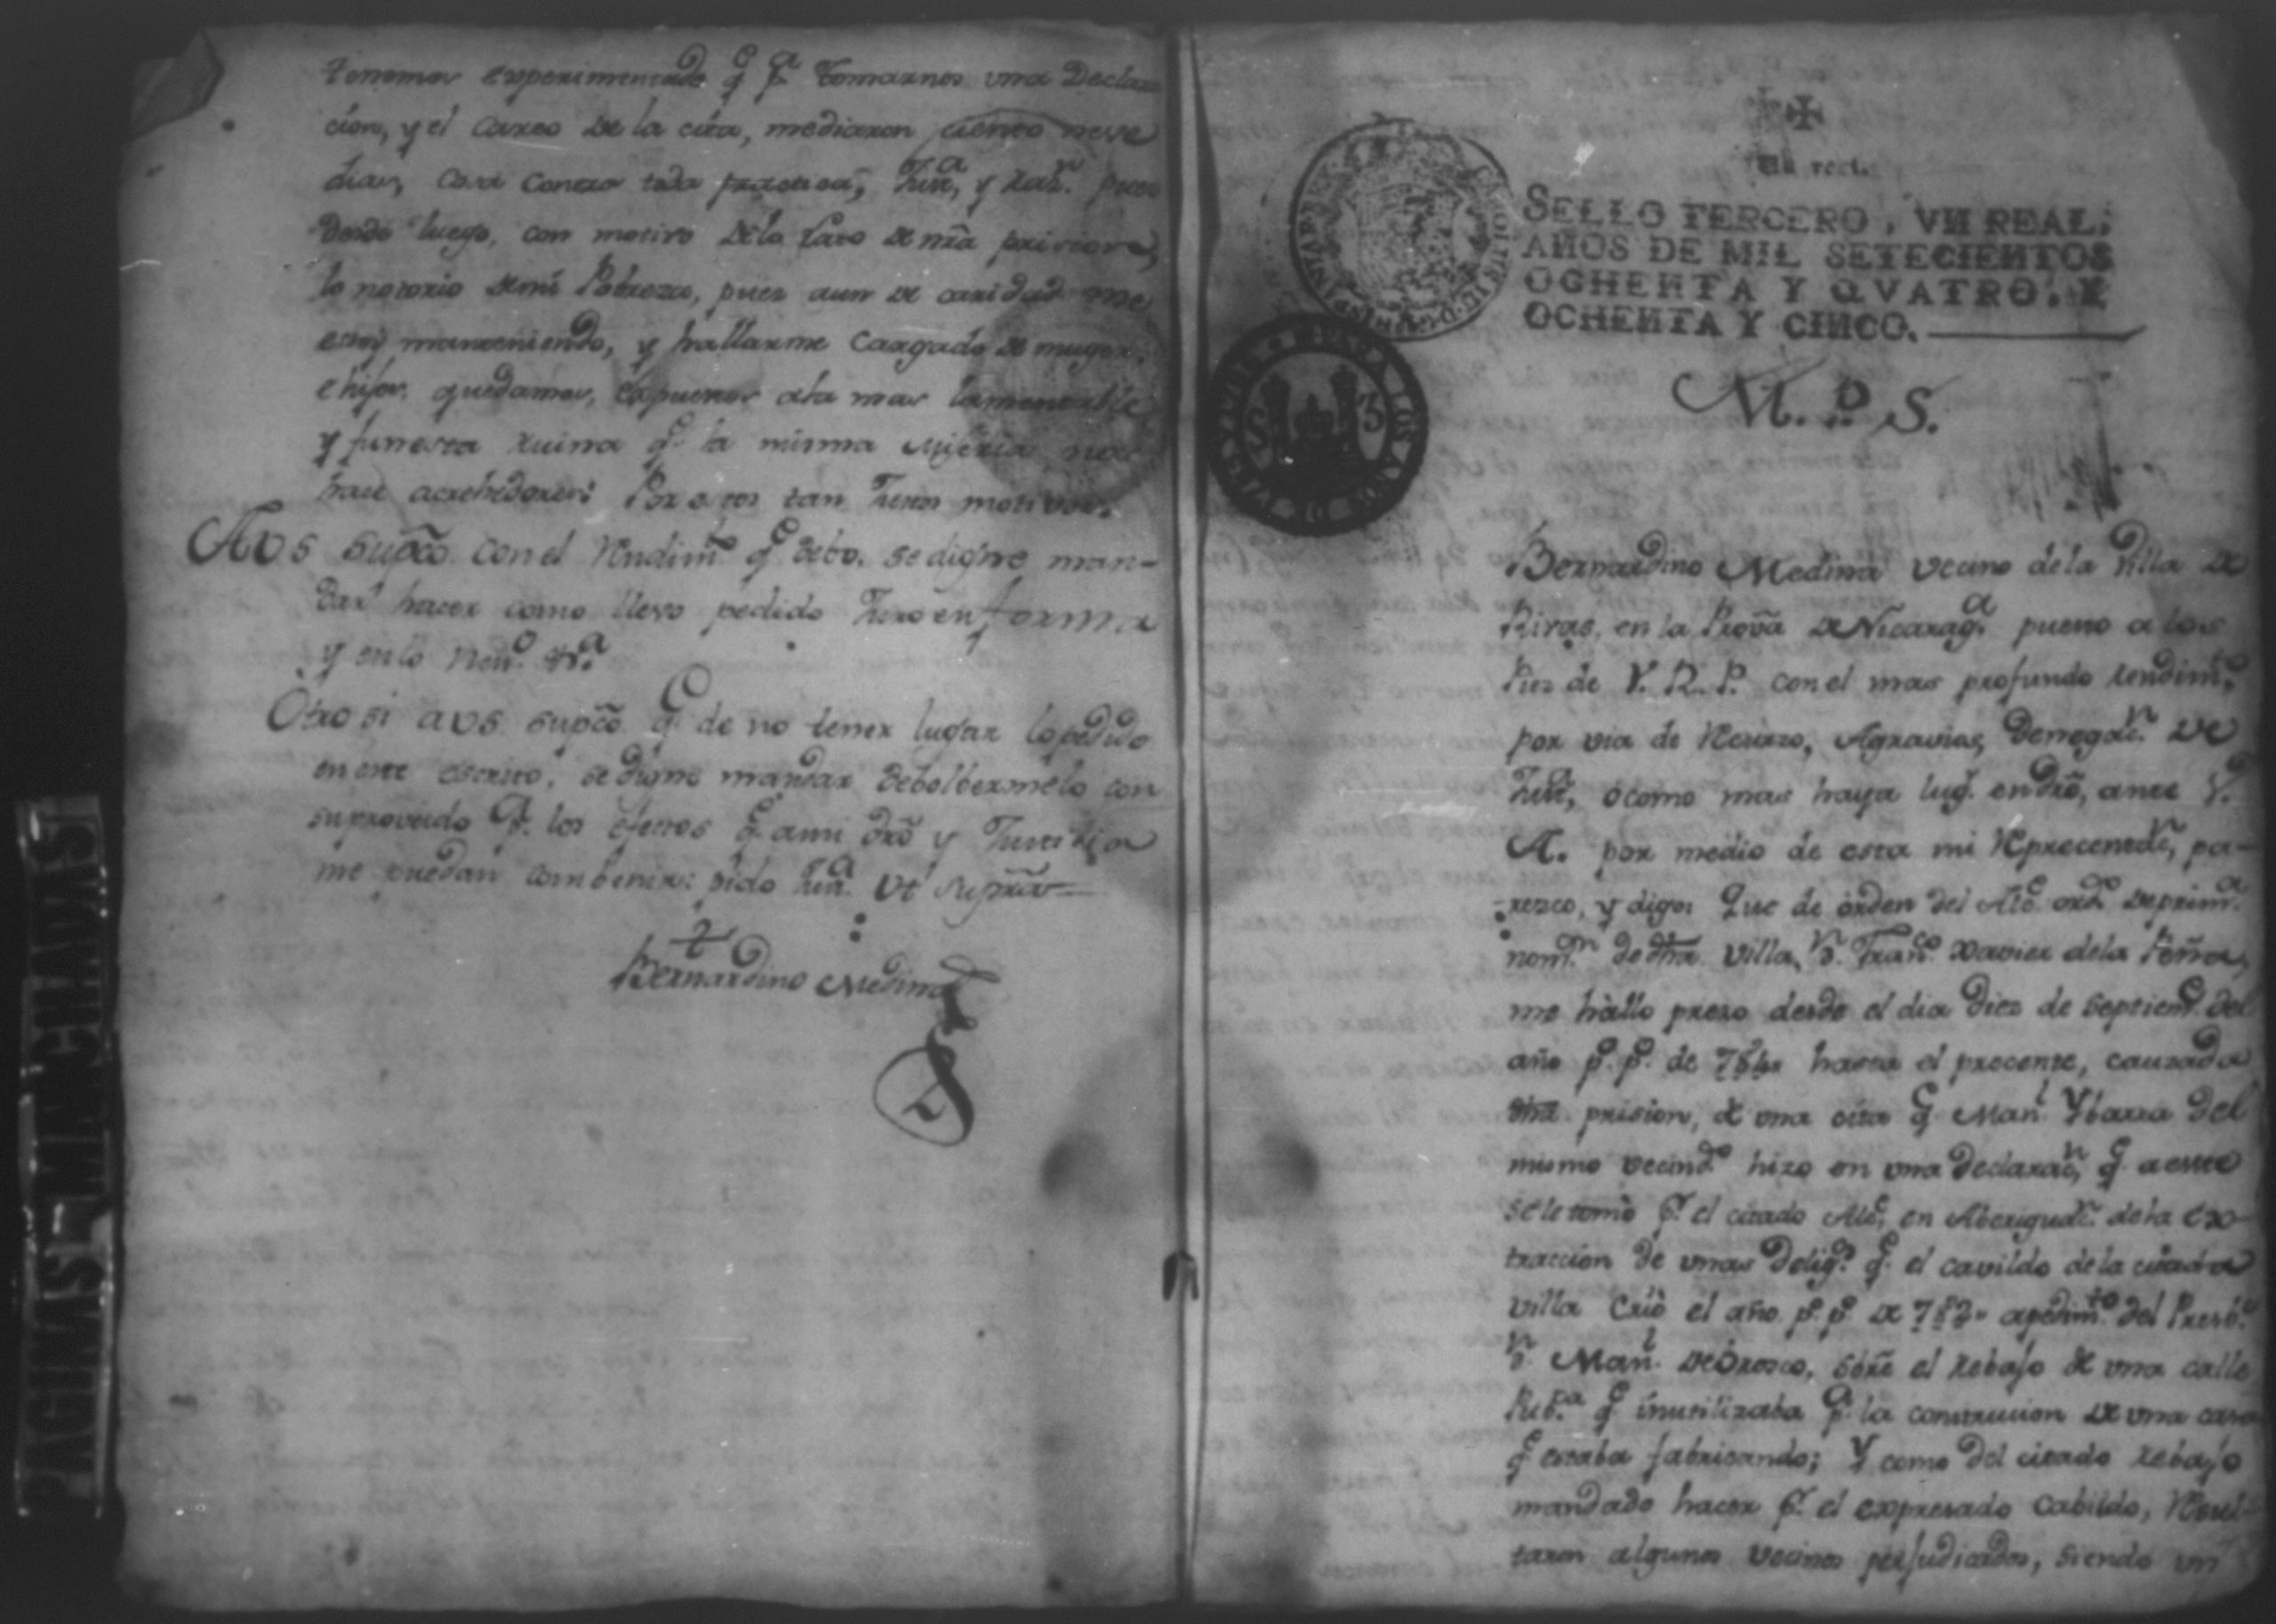 tenemos experimentado q.e p.a tomarnos una Declara
cion, y el careo de la cita, mediaron ciento nueve
dias, cosa contra toda practica, Just.a, y raz.n pues
desde luego, con motivo de lo largo de nra prision,
lo notorio de mi Pobreza, pues aun de caridad me
estoy manteniendo, y hallarme cargado de muger,
e hijos, quedamos, expuestos a la mas lamentable
y funesta ruina q.e la misma Miseria nos
hace acrehedores: Por estos tan Justos motivos.
A V S sup.co con el Rendim.to q.e debo, se digne man-
dar hacer como llevo pedido Juro en forma
y en lo Neu.o &.a
Otro si a V S sup.co q.e de no tener lugar lo pedido
en este escrito, se digne mandar debolbermelo con
su proveido p.a los efectos q.e a mi dro y Justicia
me puedan combenir: pido Just.a Vt supra
Bernardino Medina
PAGINAS MANCHADAS
Un real.
SELLO TERCERO, VN REAL,
AÑOS DE MIL SETECIENTOS
OCHENTA Y QVATRO, Y
OCHENTA Y CINCO.
M. P. S.
Bernardino Medina vecino de la Villa de
Rivas, en la Prov.a de Nicarag.a puesto a los
Pies de V. R. P. con el mas profundo rendim.to
por via de Recurso, Agravios, Denegac.n de
Just.a, o como mas haya lug.r en dro, ante V.
A. por medio de esta mi Reprecentac.n, pa-
rezco, y digo: Que de orden del Alc.e ord.o de prim.a
nom.n de dha Villa, D.n Fran.co Xavier de la Peña,
me hallo preso desde el dia diez de Septiem.e del
año p.o p.o de 784 hasta el precente, causada
dha prision, de una cita q.e Man.l Ybarra del
mismo vecind.o hizo en una declarac.n, q.e a este
se le tomó p.r el citado Alc.e, en Aberiguac.n de la ex-
traccion de unas Dilig.s q.e el cavildo de la citada
villa crió el año p.o p.o de 783 a pedim.to del Presb.o
D.n Man.l de Orosco, sobre el rebajo de una calle
Pub.ca q.e inutilizaba p.a la construcion de una casa
q.e estaba fabricando; Y como del citado rebajo
mandado hacer p.r el expresado Cabildo, Resul-
taron algunos vecinos perjudicados, siendo un